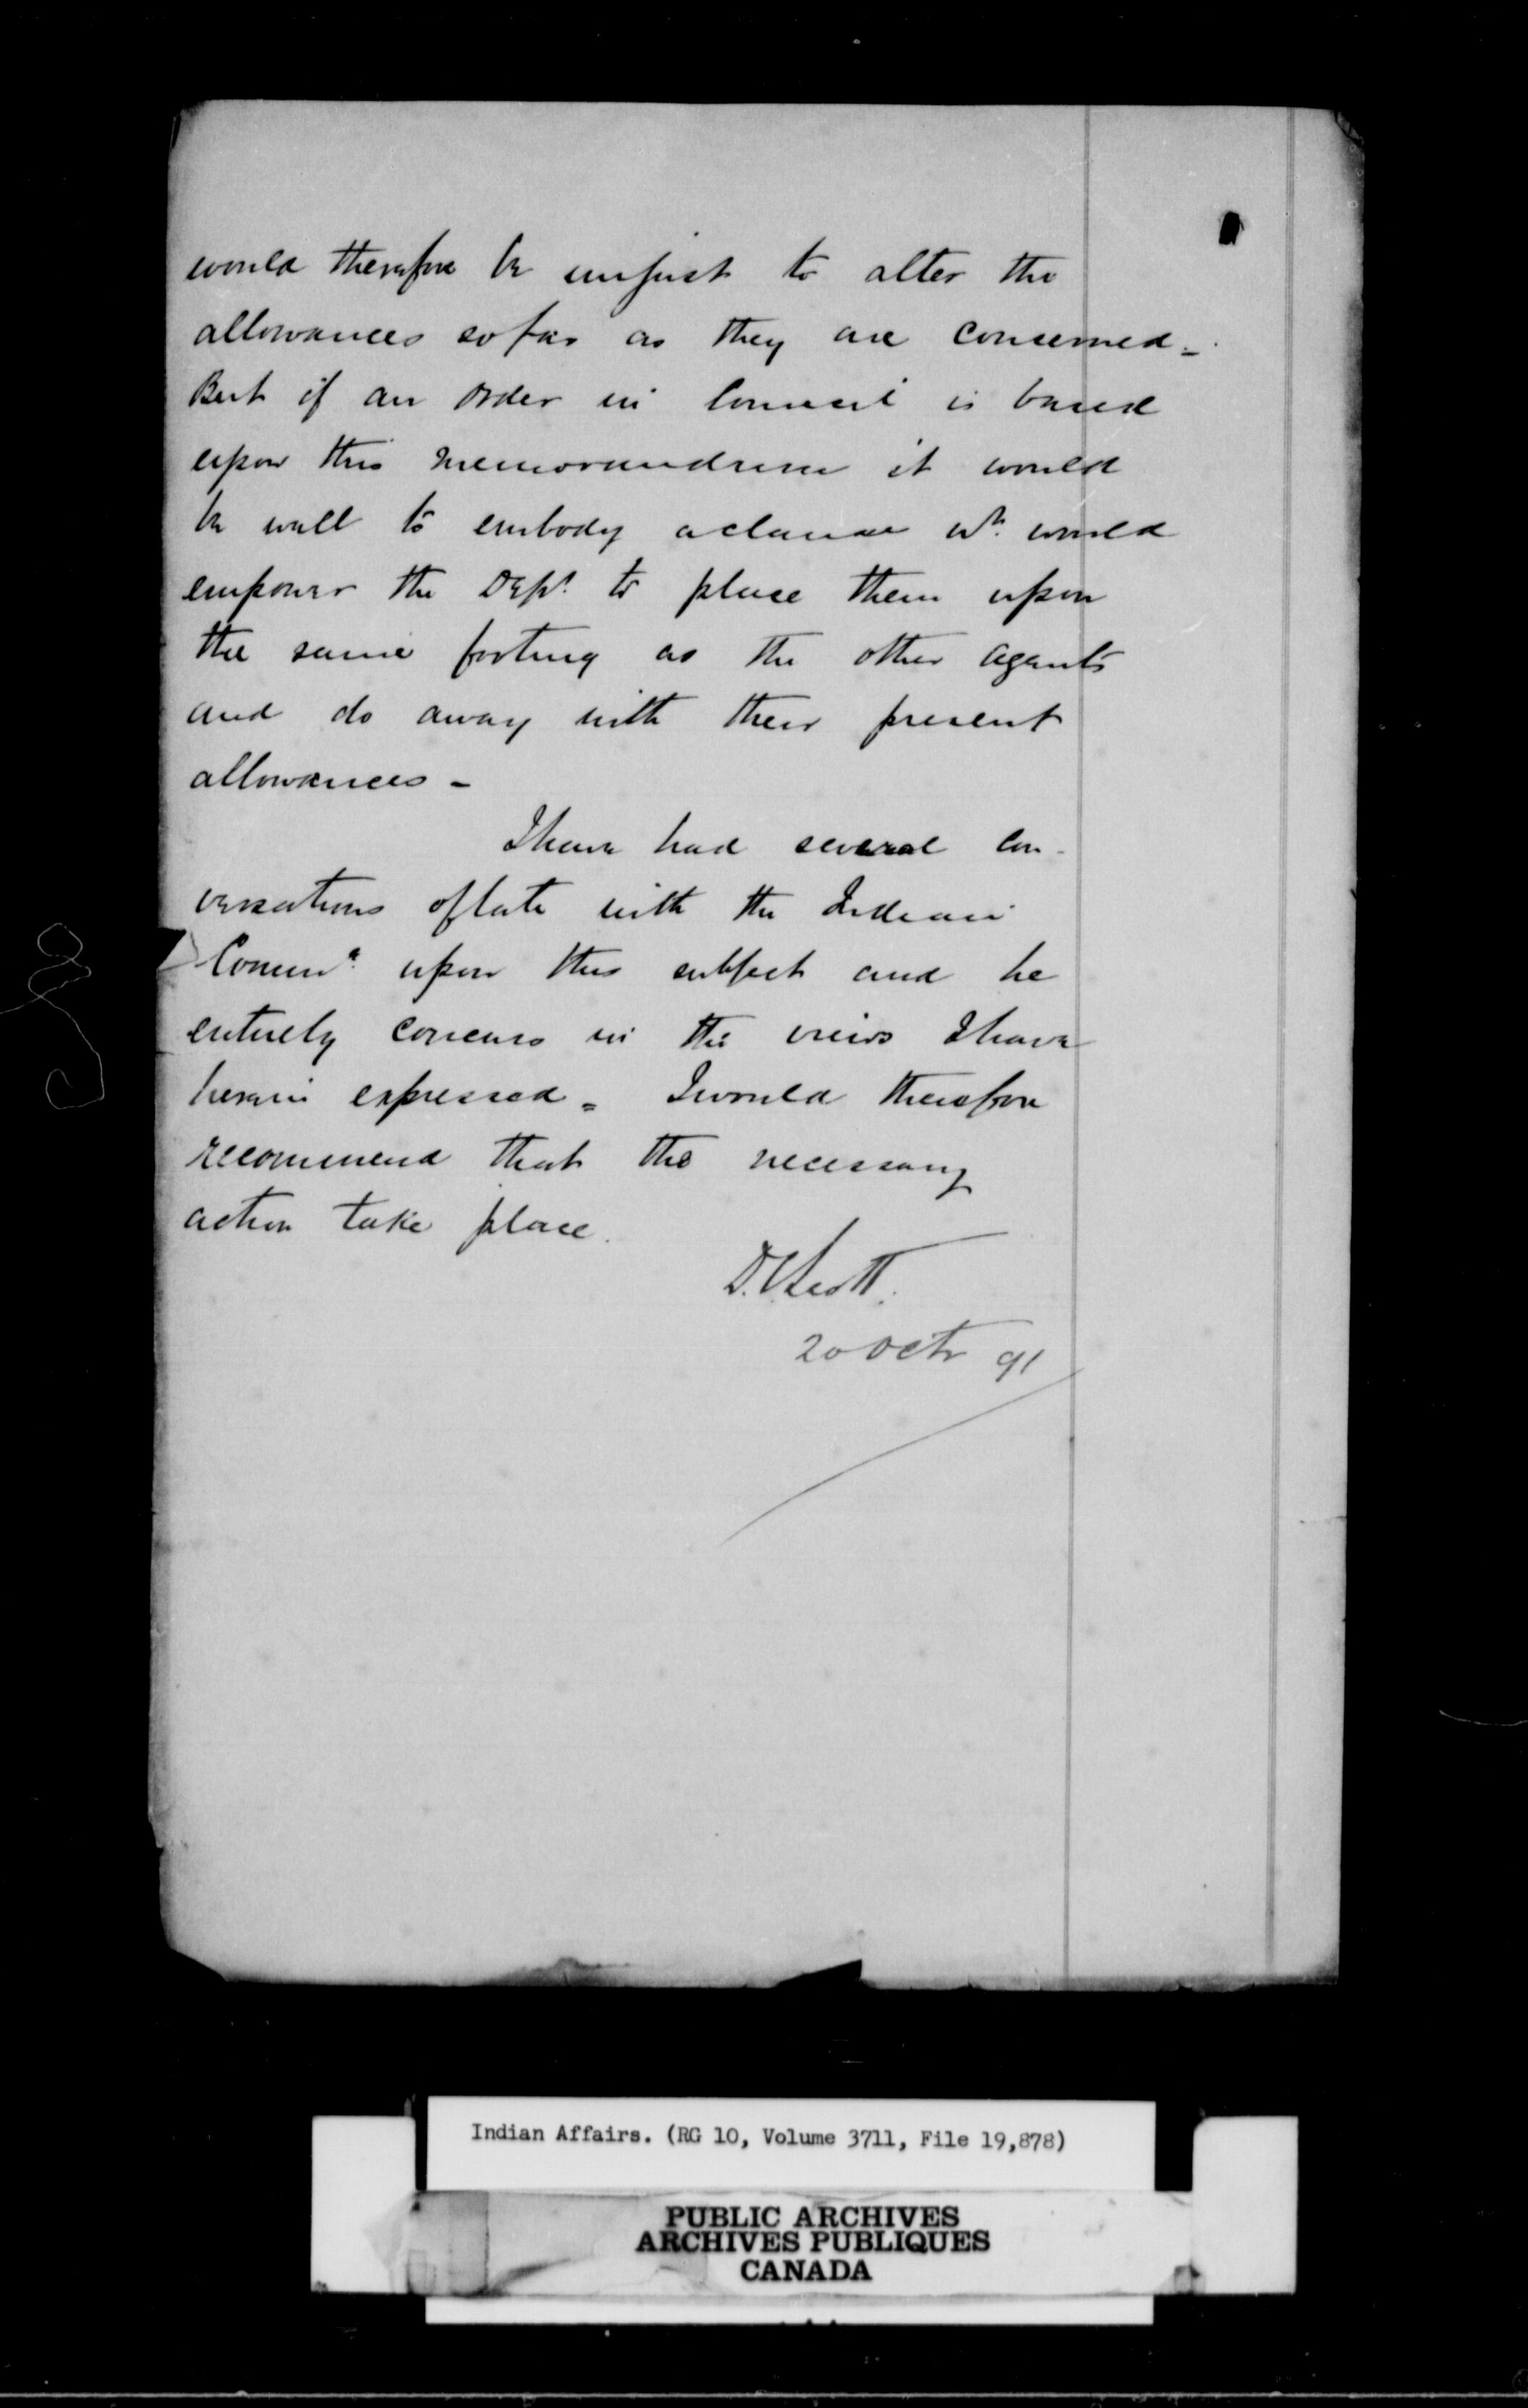 would therefore be unjust to alter the
allowances so far as they are concerned -
But if an Order in Council is based
upon this memorandum it would
be well to embody a clause wh. would
empower the Dept. to place them upon
the same footing as the other Agents
and do away with their present
allowances -
I have had several con-
versations of late with the Indian
Commr. upon this subject and he
entirely concurs in the views I have
herein expressed - I would therefore
recommend that the necessary
action take place.
D.C. Scott.
20 Octr 91
Indian Affairs. (RG 10, Volume 3711, File 19,878)
PUBLIC ARCHIVES
ARCHIVES PUBLIQUES
CANADA